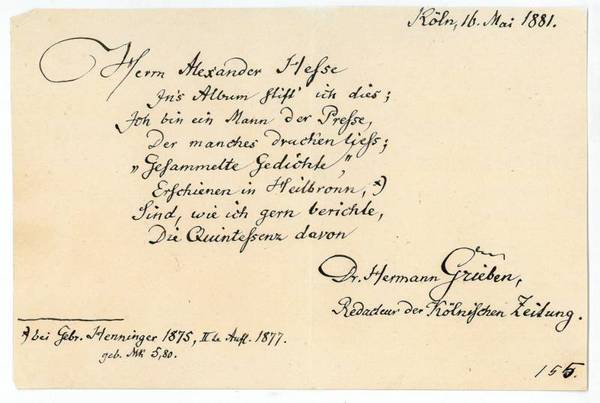 Köln, 16. Mai 1881.
Herrn Alexander Hesse
In's Album stift' ich dies;
Ich bin ein Mann der Presse,
Der manches drucken liess;
„Gesammelte Gedichte,"
Erschienen in Heilbronn, *)
Sind, wie ich gern berichte,
Die Quintessenz davon
Dr. Hermann Grieben,
Redacteur der Kölnischen Zeitung.
*) bei Gebr. Henninger 1875, II te Aufl. 1877.
geb. Mk 5,80.
155.